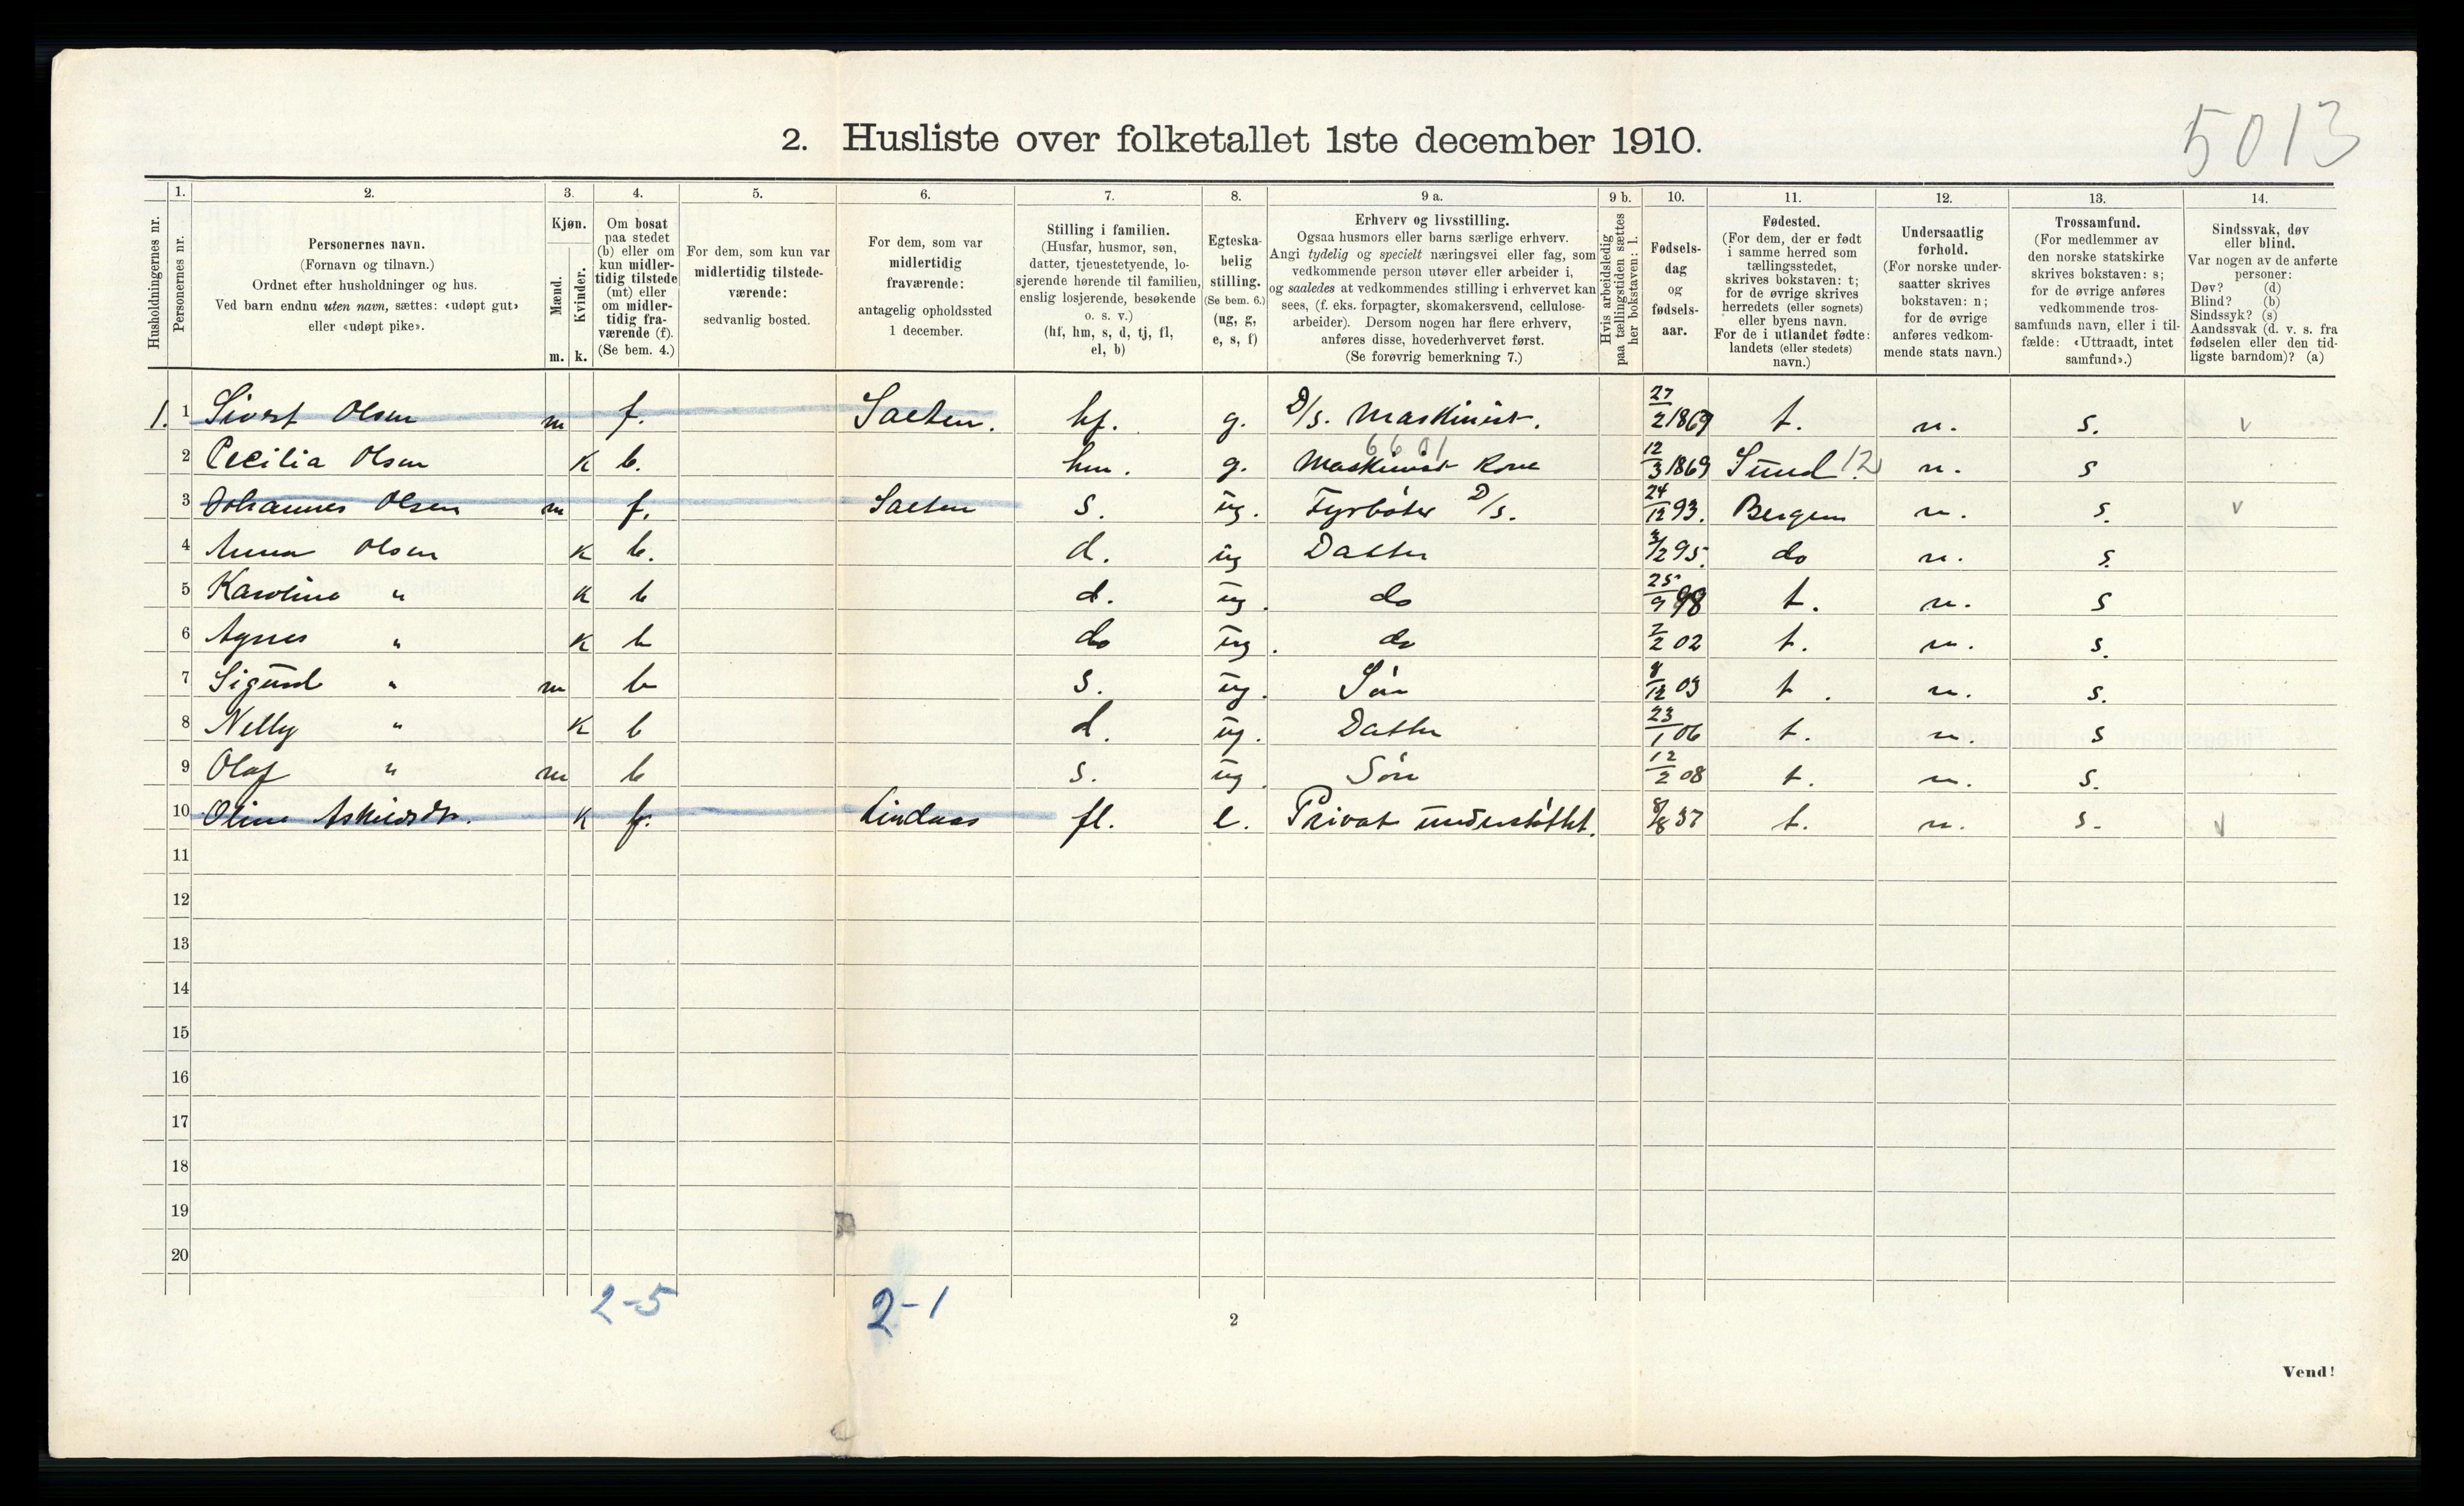 5013
2. Husliste over folketallet 1ste december 1910.
Husholdningernes nr.
1. Personernes nr.
2. Personernes navn. (Fornavn og tilnavn.) Ordnet efter husholdninger og hus. Ved barn endnu uten navn, sættes: «udøpt gut» eller «udøpt pike».
3. Kjøn. Mænd. m. Kvinder. k.
4. Om bosat paa stedet (b) eller om kun midlertidig tilstede (mt) eller om midlertidig fraværende (f). (Se bem. 4.)
5. For dem, som kun var midlertidig tilstedeværende: sedvanlig bosted.
6. For dem, som var midlertidig fraværende: antagelig opholdssted 1 december.
7. Stilling i familien. (Husfar, husmor, søn, datter, tjenestetyende, losjerende hørende til familien, enslig losjerende, besøkende o. s. v.) (hf, hm, s, d, tj, fl, el, b)
8. Egteskabelig stilling. (Se bem. 6.) (ug, g, e, s, f)
9 a. Erhverv og livsstilling. Ogsaa husmors eller barns særlige erhverv. Angi tydelig og specielt næringsvei eller fag, som vedkommende person utøver eller arbeider i, og saaledes at vedkommendes stilling i erhvervet kan sees, (f. eks. forpagter, skomakersvend, cellulosearbeider). Dersom nogen har flere erhverv, anføres disse, hovederhvervet først. (Se forøvrig bemerkning 7.)
9 b. Hvis arbeidsledig paa tællingstiden sættes her bokstaven: l.
10. Fødselsdag og fødselsaar.
11. Fødested. (For dem, der er født i samme herred som tællingsstedet, skrives bokstaven: t; for de øvrige skrives herredets (eller sognets) eller byens navn. For de i utlandet fødte: landets (eller stedets) navn.)
12. Undersaatlig forhold. (For norske undersaatter skrives bokstaven: n; for de øvrige anføres vedkommende stats navn.)
13. Trossamfund. (For medlemmer av den norske statskirke skrives bokstaven: s; for de øvrige anføres vedkommende trossamfunds navn, eller i tilfælde: «Uttraadt, intet samfund».)
14. Sindssvak, døv eller blind. Var nogen av de anførte personer: Døv? (d) Blind? (b) Sindssyk? (s) Aandssvak (d. v. s. fra fødselen eller den tidligste barndom)? (a)
1. 1 Sivert Olsen m f. Saeten. hf. g. D/s. Maskinist. 27/2 1869 t. n. s. v
6601
2 Cecilia Olsen k b. hm. g. Maskinist Kone 12/3 1869 Sund 12 n. s
3 Johannes Olsen m f. Saeten s. ug. Fyrbøter D/s. 24/12 93. Bergen n. s. v
4 Anna Olsen k b. d. ug Datter 3/2 95. do n. s.
5 Karoline " k b d. ug. do 25/9 98 t. n. s
6 Agnes " k b do ug. do 7/2 02 t. n. s.
7 Sigurd " m b s. ug. Søn 8/12 03 t. n. s.
8 Nelly " k b d. ug. Datter 23/1 06 t. n. s
9 Olaf " m b s. ug. Søn 12/2 08 t. n. s.
10 Oline k f. Lindaas fl. e. Privat understøttet. 8/8 37 t. n. s. v
11
12
13
14
15
16
17
18
19
20
2-5 2-1
2
Vend!